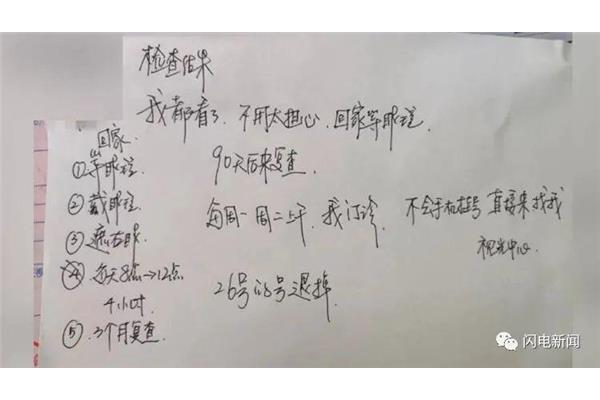 检查结果
我都看了、不用太担心、回家等眼镜、
回家、
①等眼镜、
②戴眼镜、
③遮右眼、
④每天8点→12点
4小时、
⑤、3个月复查、
90天后来复查、
每周一周二上午、我门诊、不会手机挂号 直接来找我
视光中心
26号的号退掉、
闪电新闻